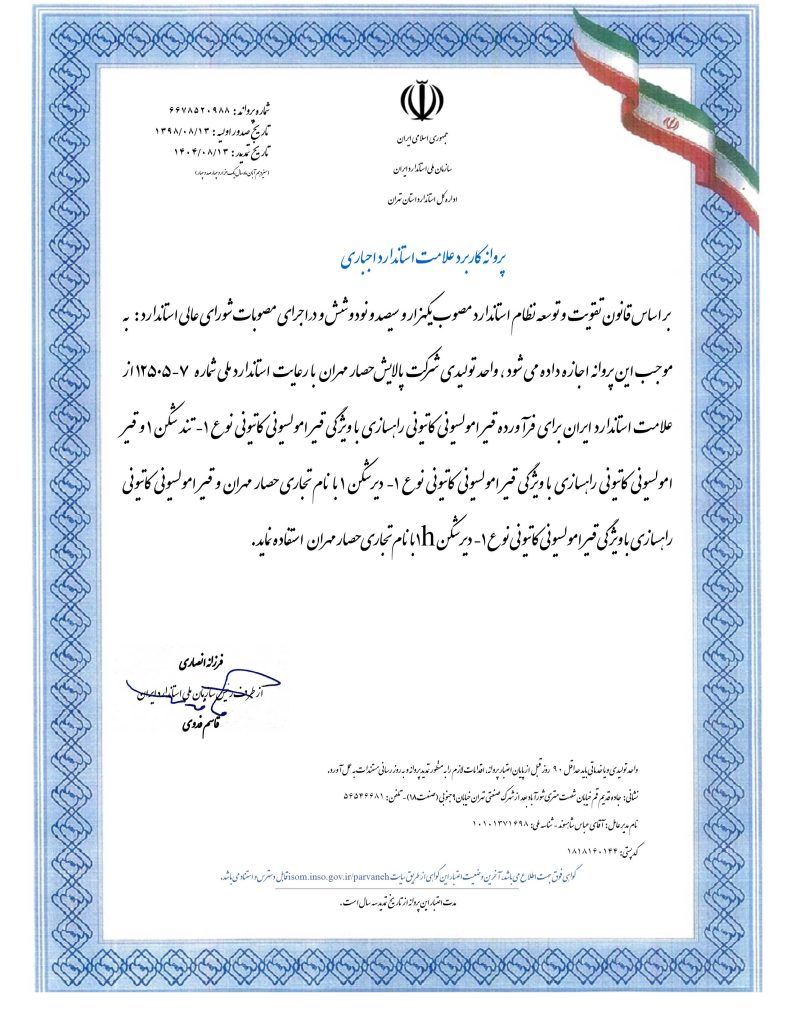 جمهوری اسلامی ایران
سازمان ملی استاندارد ایران
اداره کل استاندارد استان تهران
شماره پروانه : ۶۶۷۸۵۲۰۹۸۸
تاریخ صدور اولیه : ۱۳۹۸/۰۸/۱۳
تاریخ تمدید : ۱۴۰۴/۰۸/۱۳
(سیزدهم آبان ماه سال یک هزار و چهارصد و چهار)
پروانه کاربرد علامت استاندارد اجباری
بر اساس قانون تقویت و توسعه نظام استاندارد مصوب یکهزار و سیصد و نود و شش و در اجرای مصوبات شورای عالی استاندارد : به
موجب این پروانه اجازه داده می شود ، واحد تولیدی شرکت پالایش حصار مهران با رعایت استاندارد ملی شماره ۷-۱۲۵۰۵ از
علامت استاندارد ایران برای فرآورده قیر امولسیونی کاتیونی راهسازی با ویژگی قیر امولسیونی کاتیونی نوع ۱- تند شکن ۱ و قیر
امولسیونی کاتیونی راهسازی با ویژگی قیر امولسیونی کاتیونی نوع ۱- دیر شکن ۱ با نام تجاری حصار مهران و قیر امولسیونی کاتیونی
راهسازی با ویژگی قیر امولسیونی کاتیونی نوع ۱- دیر شکن ۱h با نام تجاری حصار مهران استفاده نماید.
فرزانه انصاری
از طرف رئیس سازمان ملی استاندارد ایران
قاسم فدوی
واحد تولیدی و یا خدماتی باید حداقل ۹۰ روز قبل از پایان اعتبار پروانه، اقدامات لازم را به منظور تمدید پروانه و به روز رسانی مستندات به عمل آورد.
نشانی : جاده قدیم قم خیابان شصت متری شورآباد بعد از شهرک صنعتی تهران خیابان ۹ جنوبی (صنعت ۱۸) - تلفن : ۵۶۵۴۶۶۸۱
نام مدیر عامل : آقای عباس شاهسوند - شناسه ملی : ۱۰۱۰۱۳۷۱۶۹۸
کد پستی : ۱۸۱۸۱۶۰۱۴۴
گواهی فوق جهت اطلاع می باشد، آخرین وضعیت اعتبار این گواهی از طریق سایت isom.inso.gov.ir/parvaneh قابل دسترس و استناد می باشد.
مدت اعتبار این پروانه از تاریخ تمدید سه سال است.